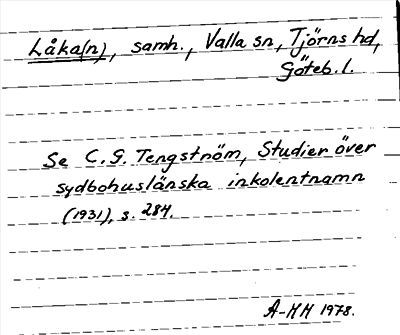 Låka(n), samh., Valla sn, Tjörns hd,
Göteb. l.
Se C. G. Tengström, Studier över
sydbohuslänska inkolentnamn
(1931), s. 284.
A-MH 1978.